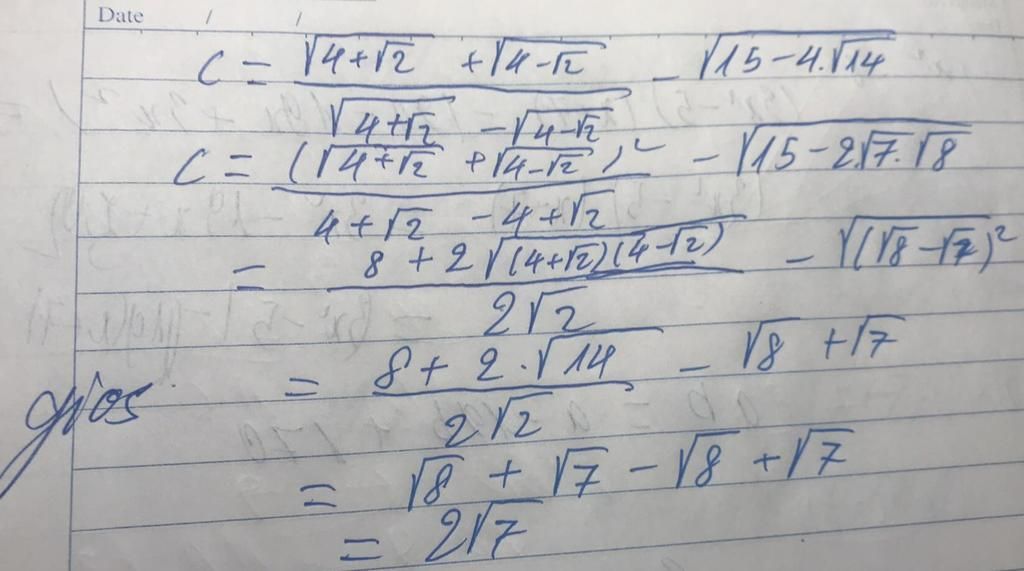 Date / /
C = \frac{\sqrt{4+\sqrt{2}} + \sqrt{4-\sqrt{2}}}{\sqrt{4+\sqrt{2}} - \sqrt{4-\sqrt{2}}} - \sqrt{15-4.\sqrt{14}}
C = \frac{(\sqrt{4+\sqrt{2}} + \sqrt{4-\sqrt{2}})^2}{4+\sqrt{2} - 4+\sqrt{2}} - \sqrt{15-2\sqrt{7}.\sqrt{8}}
= \frac{8 + 2\sqrt{(4+\sqrt{2})(4-\sqrt{2})}}{2\sqrt{2}} - \sqrt{(\sqrt{8}-\sqrt{7})^2}
= \frac{8 + 2.\sqrt{14}}{2\sqrt{2}} - \sqrt{8} + \sqrt{7}
= \sqrt{8} + \sqrt{7} - \sqrt{8} + \sqrt{7}
= 2\sqrt{7}